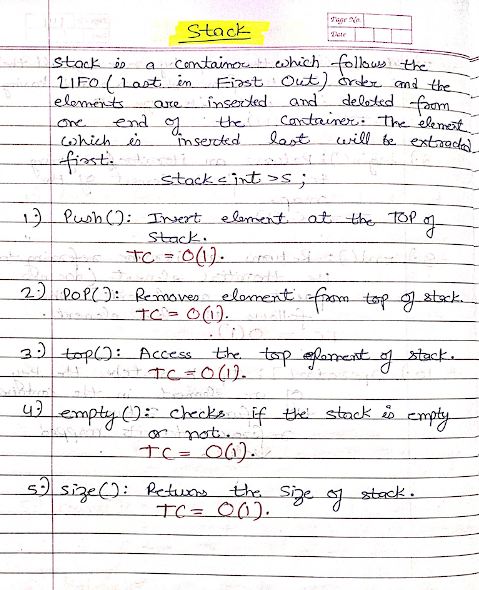 Page No.
Date
Stack
Stack is a container which follows the
LIFO (Last in First Out) order and the
elements are inserted and deleted from
one end of the container. The element
which is inserted last will be extracted
first.
stack<int>s;
1) Push(): Insert element at the TOP of
stack.
TC = O(1).
2) POP(): Removes element from top of stack.
TC = O(1).
3) top(): Access the top element of stack.
TC = O(1).
4) empty(): checks if the stack is empty
or not.
TC = O(1).
5) size(): Returns the size of stack.
TC = O(1).